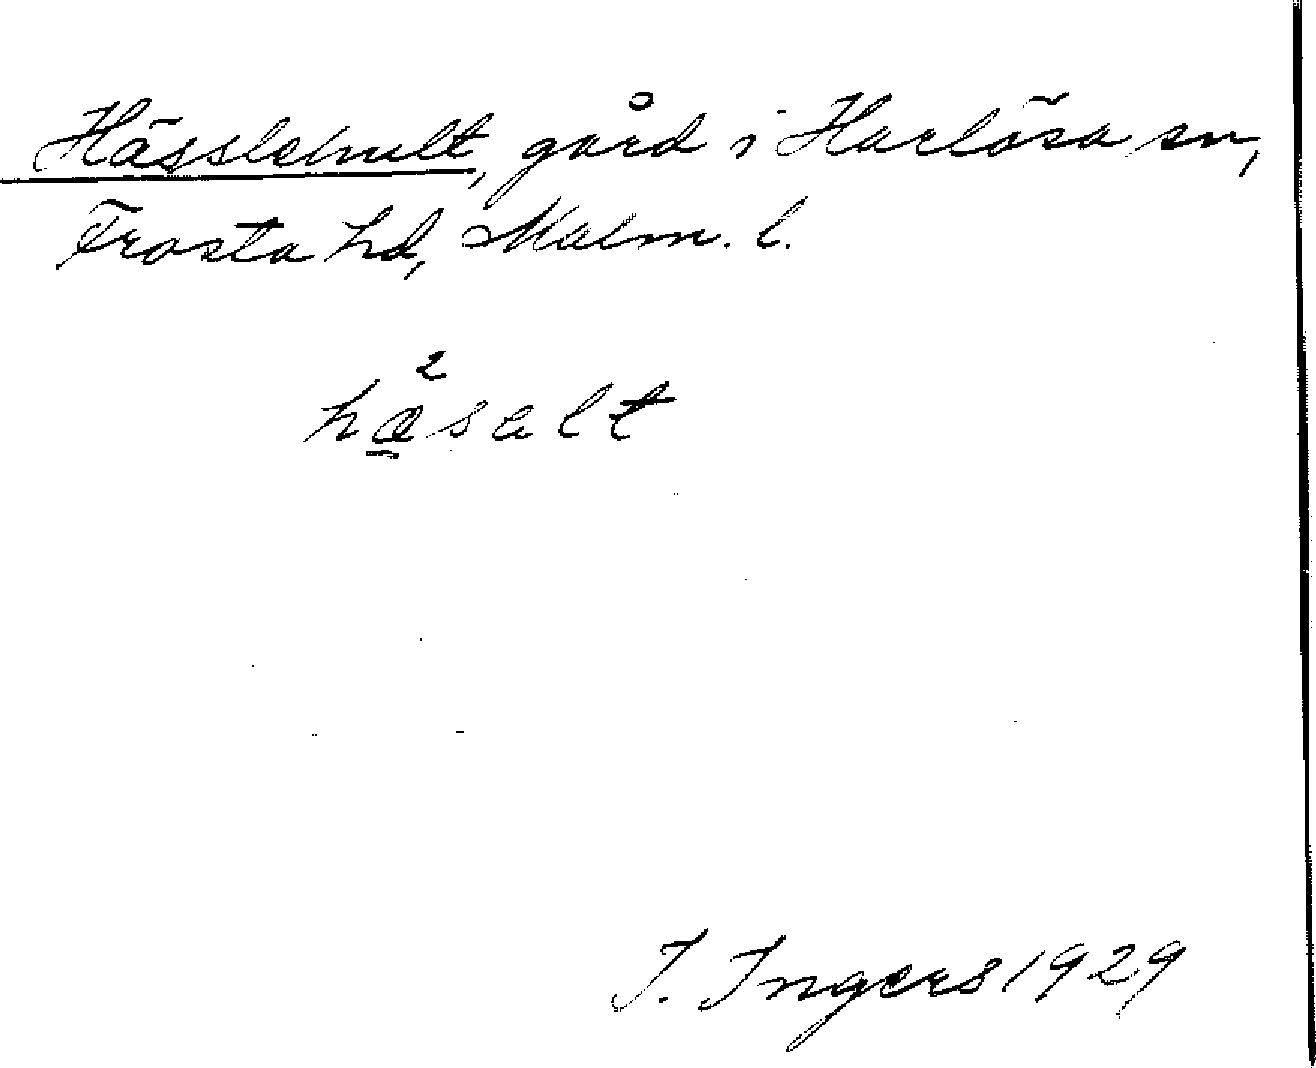 Hässlehult, gård i Harlösa sn,
Frosta hd, Malm. l.
hæ²salt
I. Ingers 1929